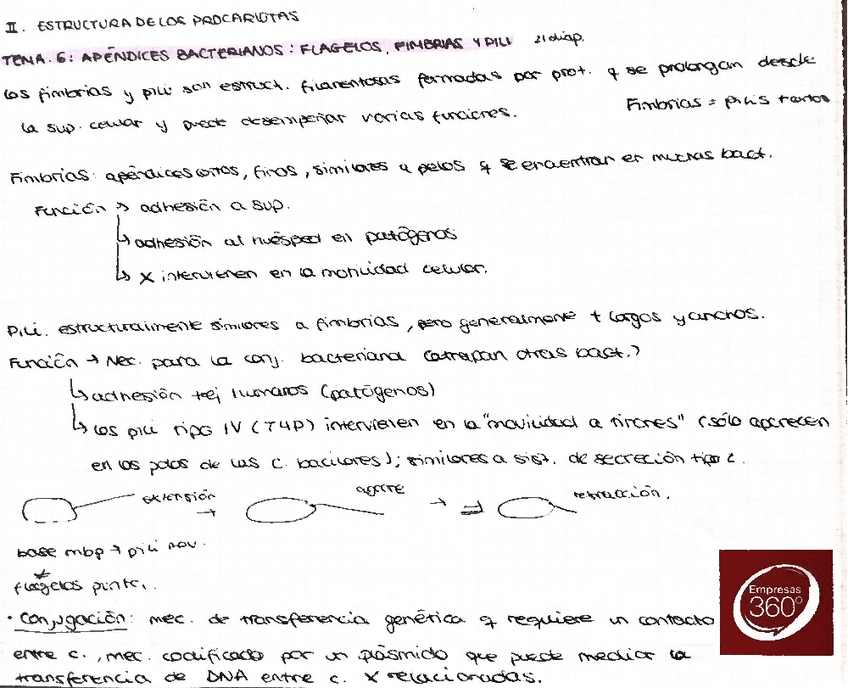 II. ESTRUCTURA DE LOS PROCARIOTAS
TEMA. 6: APÉNDICES BACTERIANOS: FLAGELOS, FIMBRIAS Y PILI 21 diap.
Las fimbrias y pili son estruct. filamentosas formadas por prot. q se prolongan desde
la sup. celular y puede desempeñar varias funciones.
Fimbrias = pilis
Fimbrias: apéndices cortos, finos, similares a pelos q se encuentran en muchas bact.
Función → adhesión a sup.
↳ adhesión al huésped en patógenos
↳ X intervienen en la motilidad celular.
Pili. estructuralmente similares a fimbrias, pero generalmente + largos y anchos.
Función → Nec. para la conj. bacteriana (atrapan otras bact.)
↳ adhesión tej humanos (patógenos)
↳ Los pili tipo IV (T4P) intervienen en la "movilidad a tirones" (sólo aparecen
en los polos de las c. bacilares); similares a sist. de secreción tipo
extensión → agarre → retracción.
base mbp → pili mov.
flagelos
· Conjugación: mec. de transferencia genética q requiere un contacto
entre c., mec. codificado por un plásmido que puede mediar la
transferencia de DNA entre c. X relacionadas.
Empresas
360°